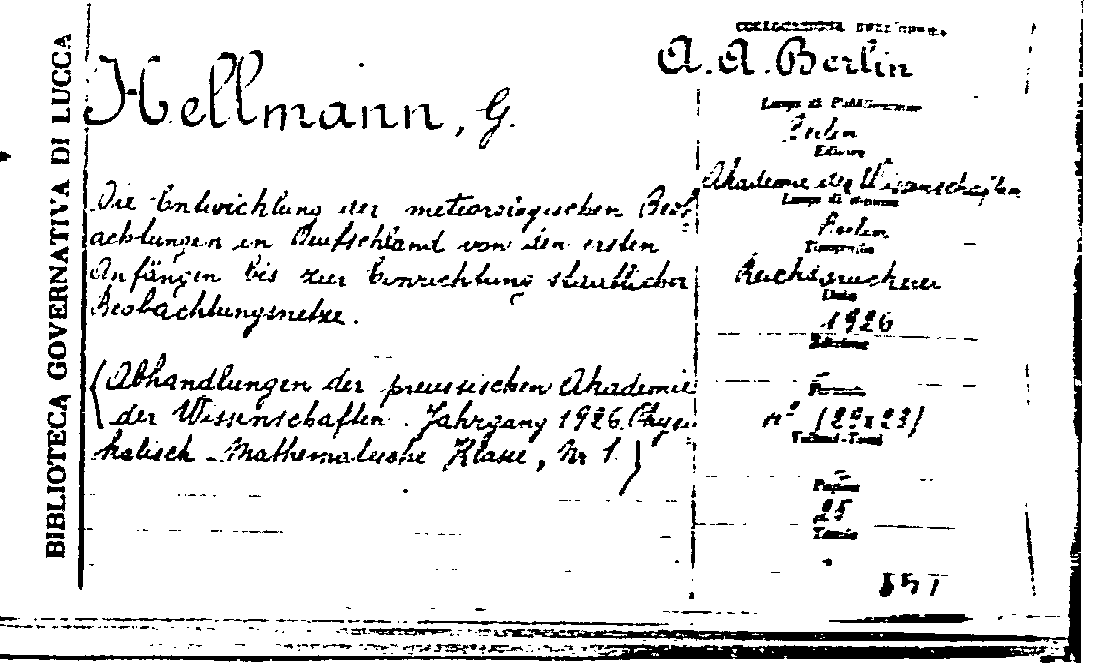 BIBLIOTECA GOVERNATIVA DI LUCCA
COLLOCAZIONE DELL'OPERA
A. A. Berlin
Hellmann, G.
Die Entwicklung der meteorologischen Beob
achtungen in Deutschland von den ersten
Anfängen bis zur Einrichtung staatlicher
Beobachtungsnetze.
(Abhandlungen der preussischen Akademie
der Wissenschaften. Jahrgang 1926 Physi
kalisch - Mathematische Klasse, Nr 1.)
Luogo di Pubblicazione
Berlin
Editore
Akademie der Wissenschaften
Luogo di stampa
Berlin
Tipografia
Reichsdruckerei
Data
1926
Edizione
Formato
Volumi-Tomi
Pagine
25
Tavole